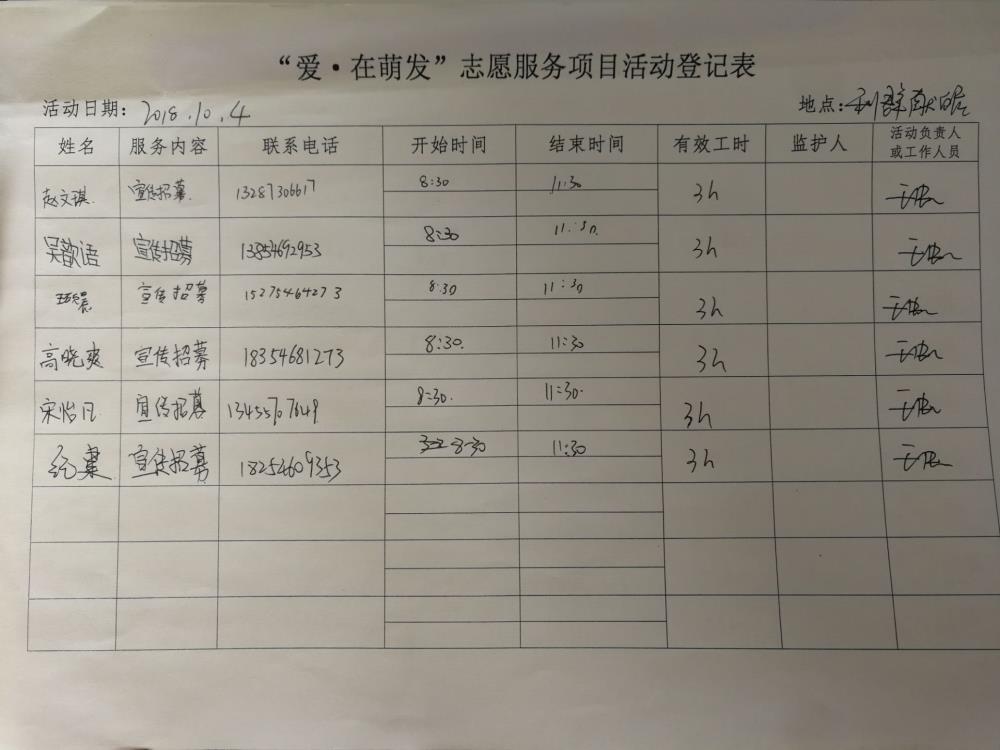 “爱·在萌发”志愿服务项目活动登记表
活动日期：2018.10.4 地点：利群献血
姓名 服务内容 联系电话 开始时间 结束时间 有效工时 监护人 活动负责人或工作人员
赵文琪 宣传招募 13287306617 8:30 11:30 3h
吴歆语 宣传招募 13854692953 8:30 11:30 3h
宣传招募 15275464273 8:30 11:30 3h
高晓爽 宣传招募 18354681273 8:30 11:30 3h
宋怡凡 宣传招募 13455707649 8:30 11:30 3h
纪 宣传招募 18252609353 8:30 11:30 3h